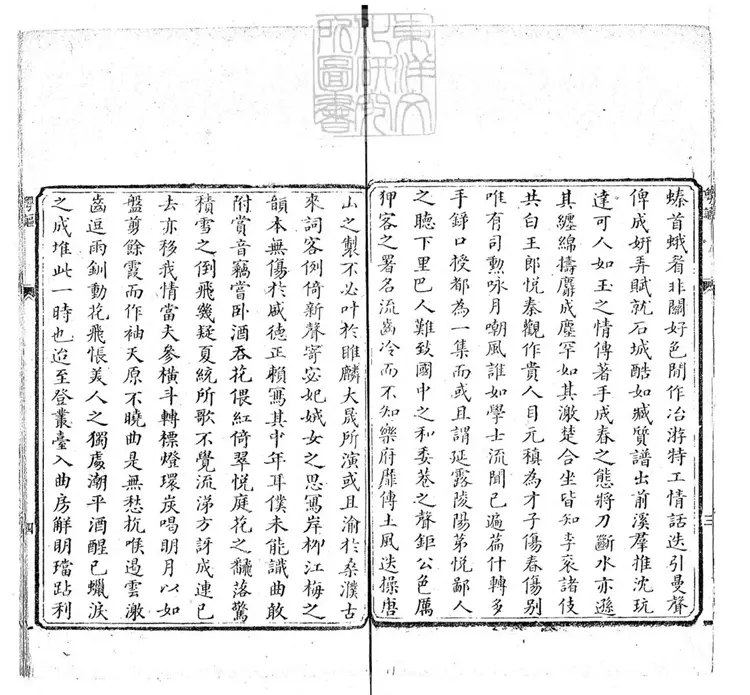 螓首蛾眉非關好色閒作冶游特工情話迭引曼聲
俾成妍弄賦就石城酷如臧質譜出前溪羣推沈玩
達可人如玉之情傳著手成春之態將刀斷水亦遜
其纏綿擣麝成塵罕如其激楚合坐皆知李袞諸伎
共白王郎悅秦觀作貴人目元稹為才子傷春傷別
唯有司勳咏月嘲風誰如學士流聞已遍篇什轉多
手錚口授都為一集而或且謂延露陵陽第悅鄙人
之聽下里巴人難致國中之和委巷之聲鉅公色厲
狎客之署名流齒冷而不知樂府靡傳土風迭操唐
山之製不必叶於睢麟大晟所演或且渝於桑濮古
來詞客例倚新聲寄宓妃娀女之思寫岸柳江梅之
韻本無傷於盛德正賴寫其中年耳僕未能識曲敢
附賞音竊嘗卧酒吞花偎紅倚翠悅庭花之飜落驚
積雪之倒飛幾疑夏統所歌不覺流涕方訝成連已
去亦移我情當夫參橫斗轉標燈環炭唱明月以如
盤剪餘霞而作袖天原不曉曲是無愁抗喉遏雲激
齒逗雨釧動花飛悵美人之獨處潮平酒醒已蠟淚
之成堆此一時也迨至登叢臺入曲房解明璫跕利
粵謳
三
粵謳
四
東洋文化研究所圖書